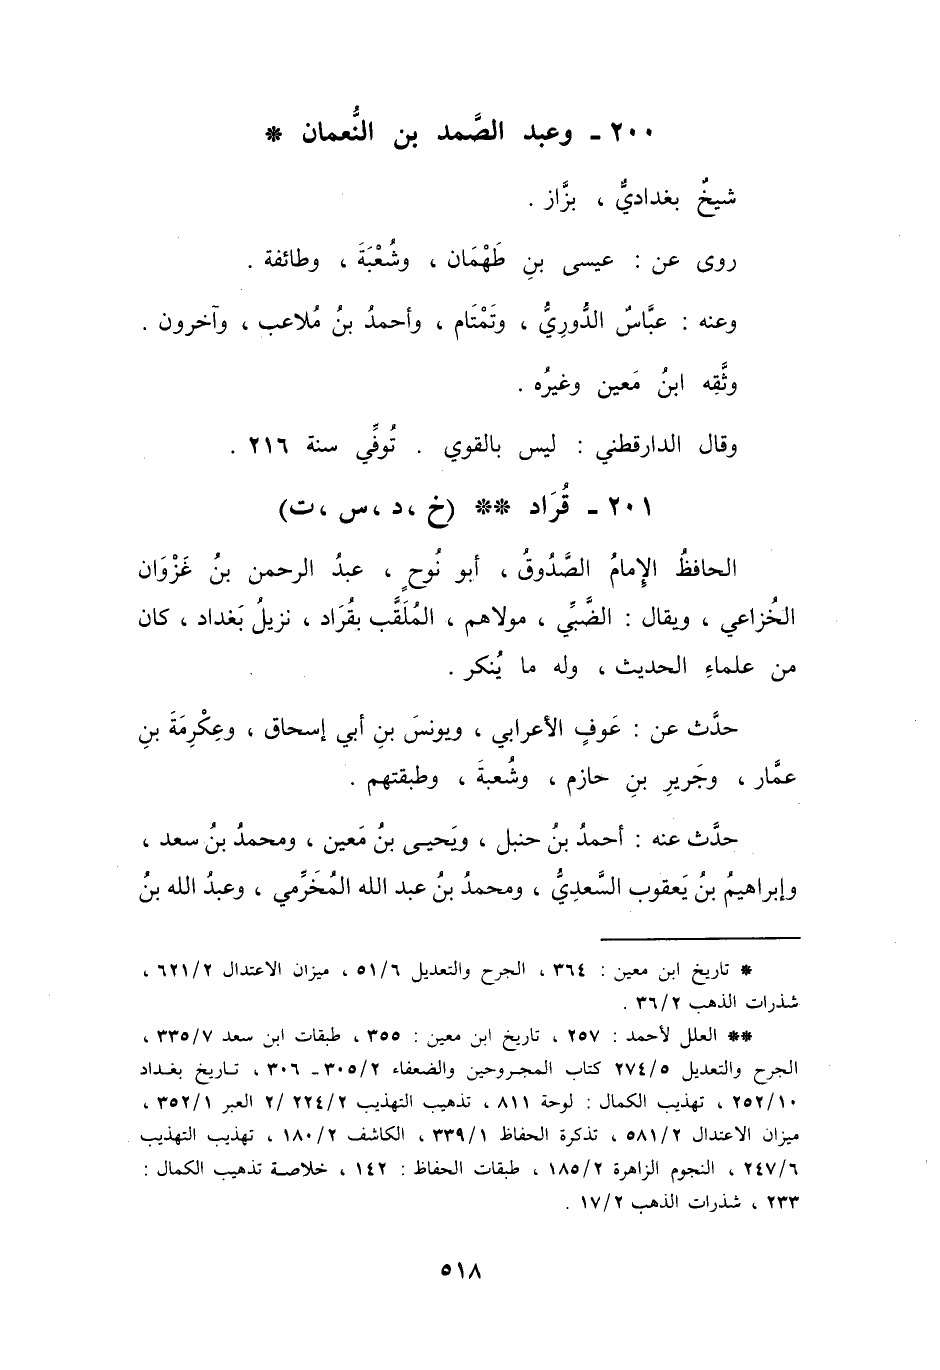 ٢٠٠ ـ وعبد الصَّمد بن النُّعمان *
شيخٌ بغداديٌّ ، بزَّاز .
روى عن : عيسى بنِ طَهْمَان ، وشُعْبَةَ ، وطائفة .
وعنه : عبَّاسٌ الدُّورِيُّ ، وتَمْتَام ، وأحمدُ بنُ مُلاعب ، وآخرون .
وثَّقه ابنُ مَعين وغيرُه .
وقال الدارقطني : ليس بالقوي . تُوفِّي سنة ٢١٦ .
٢٠١ ـ قُرَاد ** (خ ، د ، س ، ت)
الحافظُ الإِمامُ الصَّدُوقُ ، أبو نُوحٍ ، عبدُ الرحمن بنُ غَزْوَان
الخُزاعي ، ويقال : الضَّبِّي ، مولاهم ، المُلَقَّب بقُرَاد ، نزيلُ بَغداد ، كان
من علماءِ الحديث ، وله ما يُنكر .
حدَّث عن : عَوفٍ الأعرابي ، ويونسَ بنِ أبي إسحاق ، وعِكْرِمَةَ بنِ
عمَّار ، وجَريرِ بنِ حازم ، وشُعبةَ ، وطبقتهم .
حدَّث عنه : أحمدُ بنُ حنبل ، ويَحيى بنُ مَعين ، ومحمدُ بنُ سعد ،
وإبراهيمُ بنُ يَعقوب السَّعدِيُّ ، ومحمدُ بنُ عبد الله المُخَرِّمي ، وعبدُ الله بنُ
* تاريخ ابن معين : ٣٦٤ ، الجرح والتعديل ٥١/٦ ، ميزان الاعتدال ٦٢١/٢ ،
شذرات الذهب ٣٦/٢ .
** العلل لأحمد : ٢٥٧ ، تاريخ ابن معين : ٣٥٥ ، طبقات ابن سعد ٣٣٥/٧ ،
الجرح والتعديل ٢٧٤/٥ كتاب المجروحين والضعفاء ٣٠٥/٢ ـ ٣٠٦ ، تاريخ بغداد
٢٥٢/١٠ ، تهذيب الكمال : لوحة ٨١١ ، تذهيب التهذيب ٢٢٤/٢ /٢ العبر ٣٥٢/١ ،
ميزان الاعتدال ٥٨١/٢ ، تذكرة الحفاظ ٣٣٩/١ ، الكاشف ١٨٠/٢ ، تهذيب التهذيب
٢٤٧/٦ ، النجوم الزاهرة ١٨٥/٢ ، طبقات الحفاظ : ١٤٢ ، خلاصة تذهيب الكمال :
٢٣٣ ، شذرات الذهب ١٧/٢ .
٥١٨